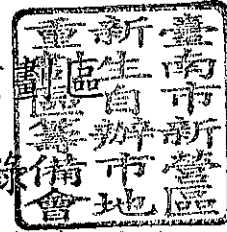 臺南市新營區
新生自辦市地
重劃區籌備會
劃區
錄